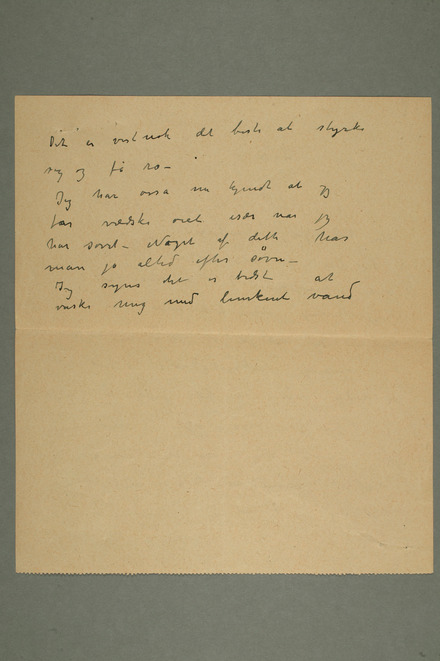 Det er vist nok det beste at styrke
sig og få ro –
Jeg har osså nu kjendt at jeg
før vædske øiet især når jeg
har sovet – Noget af dette har
man jo altid efter søvn –
Jeg synes det er bedst at
vaske mig med lunkent vand